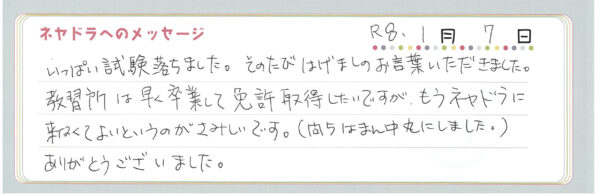 ネヤドラへのメッセージ R8. 1月 7日
いっぱい試験落ちました。そのたびはげましのお言葉いただきました。
教習所は早く卒業して免許取得したいですが、もうネヤドラに
来なくてよいというのがさみしいです。(問5はまん中丸にしました。)
ありがとうございました。